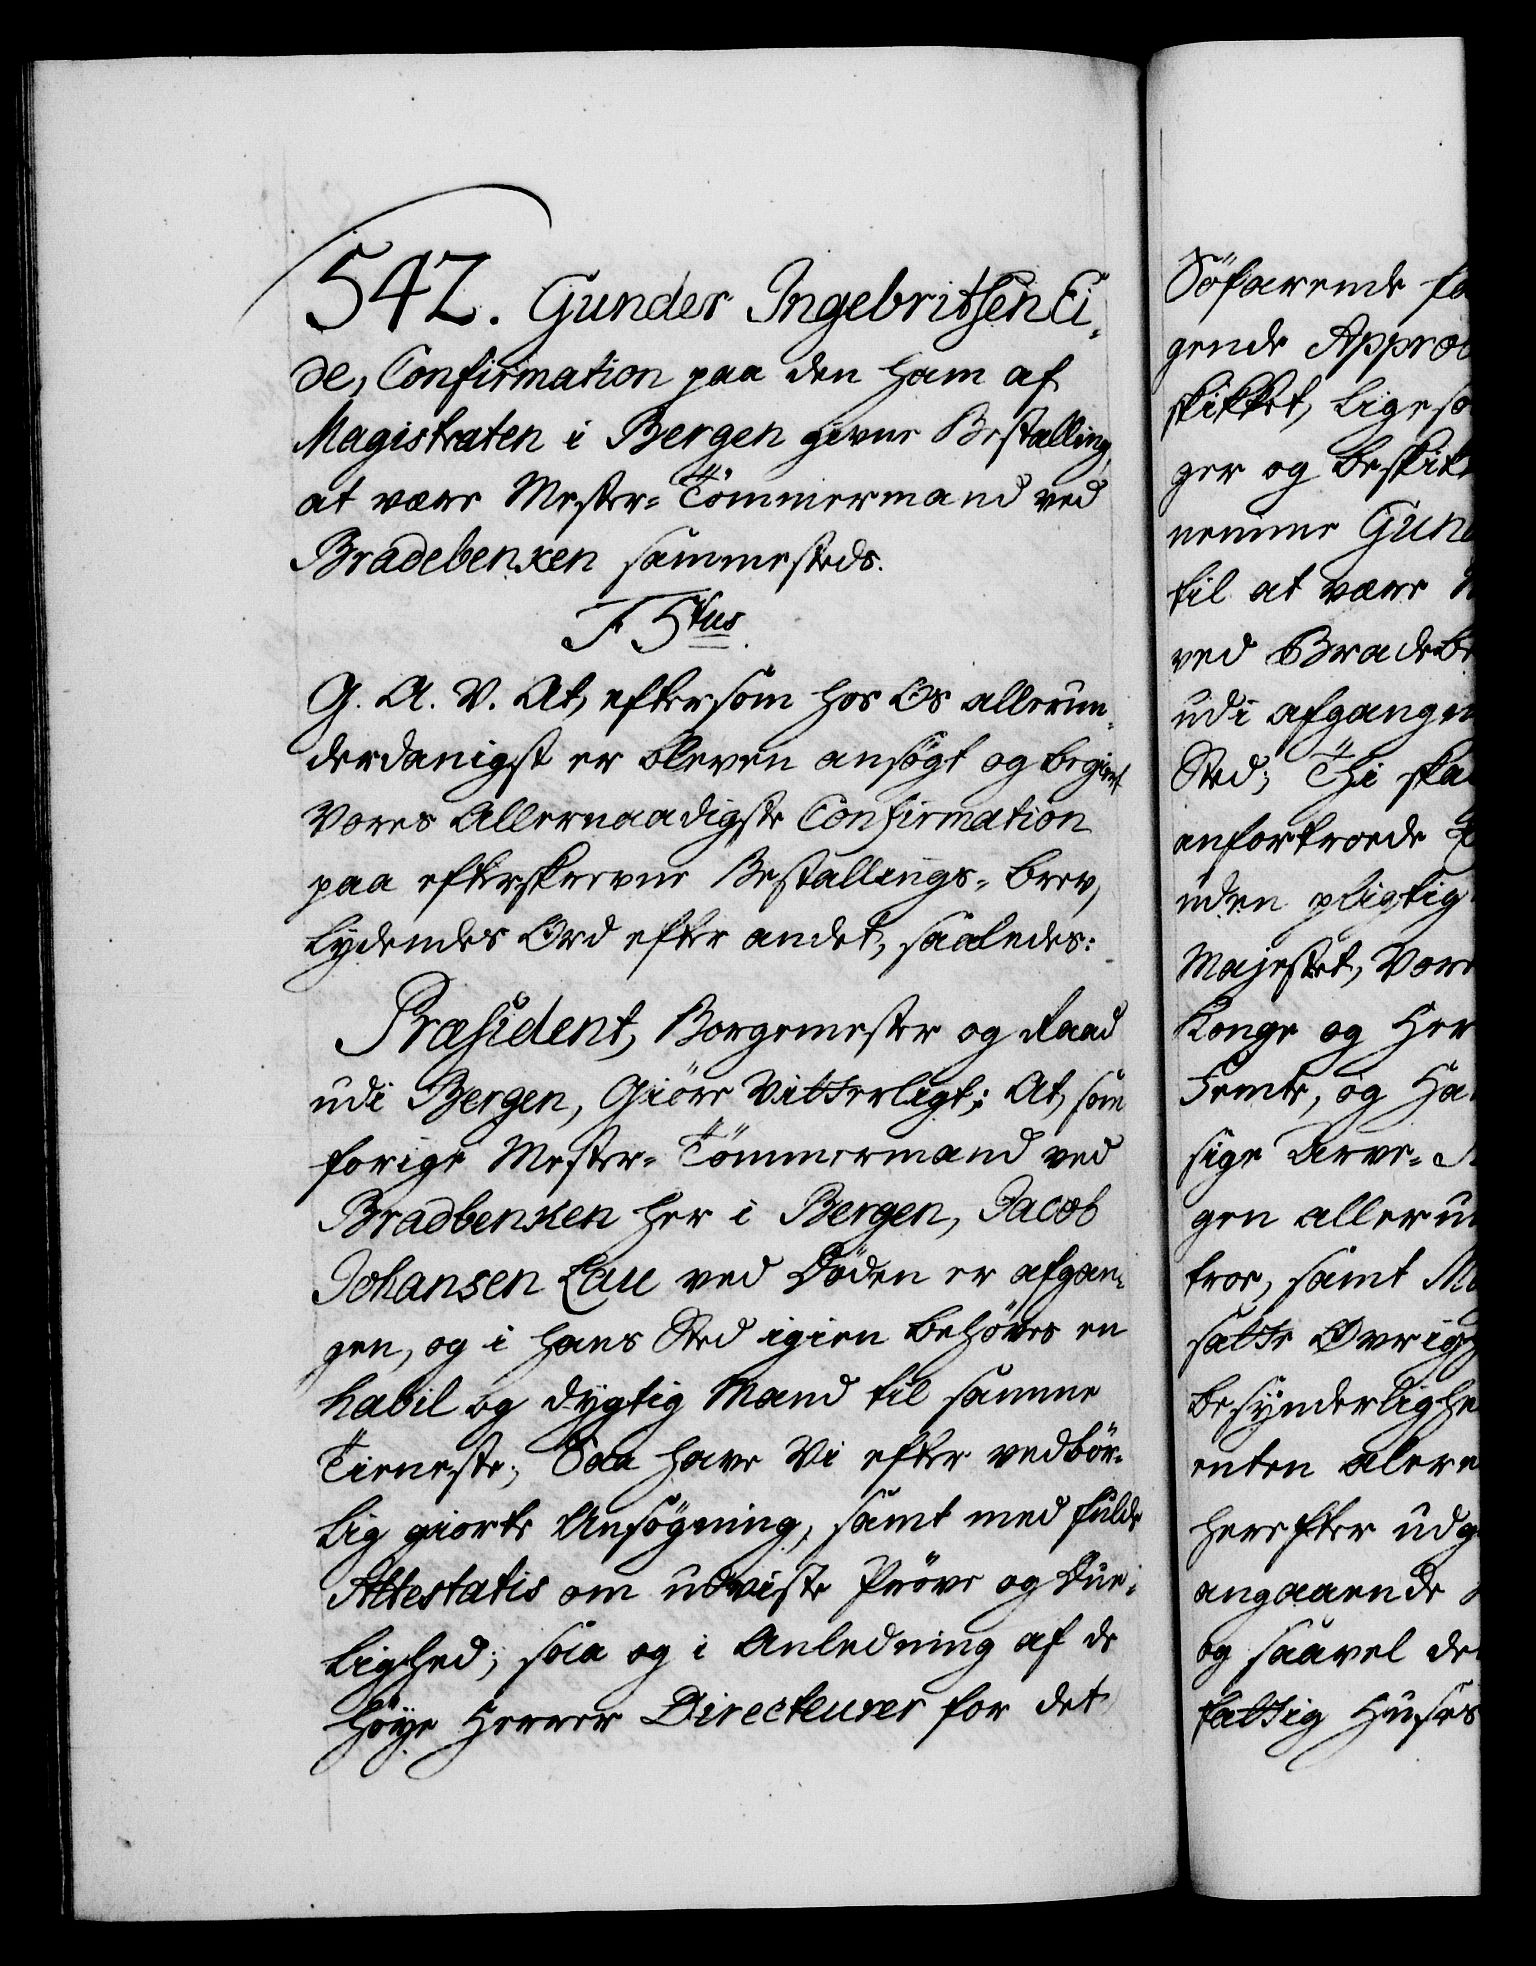 542. Gunder Ingebritsen Ei-
de, Confirmation paa den ham af
Magistraten i Bergen givne Bestalling,
at være Mester-Tömmermand ved
Bradebenken sammesteds.
F 5tus
G. A. V. At, eftersom hos Os allerun-
derdanigst er bleven ansögt og begiert
Vores Allernaadigste Confirmation
paa efterskrevne Bestallings-brev,
lydendes Ord efter andet, saaledes:
Præsident, Borgemester og Raad
udi Bergen, Giöre Vitterligt; At, som
forige Mester-Tömmermand ved
Bradbenken her i Bergen, Jacob
Johansen Lau ved Döden er afgan-
gen, og i hans Sted igien behöves en
habil og dygtig Mand til samme
Tieneste; Saa have Vi efter vedbör-
lig giorte Ansögning, samt med fulde
Attestatis om udviste Pröve og Due-
lighed; saa og i Anledning af de
höye Herrer Directeurer for det
Söfarende fa
gende Approb
skikket, ligeso
ger og beskik
nemme Gun
til at være M
ved Bradebe
udi afgangen
Sted; Thi ska
anfortroede
uden pligtig
Majestet, Vor
Konge og Her
Femte, og Ha
sige Arve-
gen allerun
troe, samt M
satte Øvrigh
besÿnderlighe
enten alere
herefter udg
angaaende
og saavel de
fattig Huses